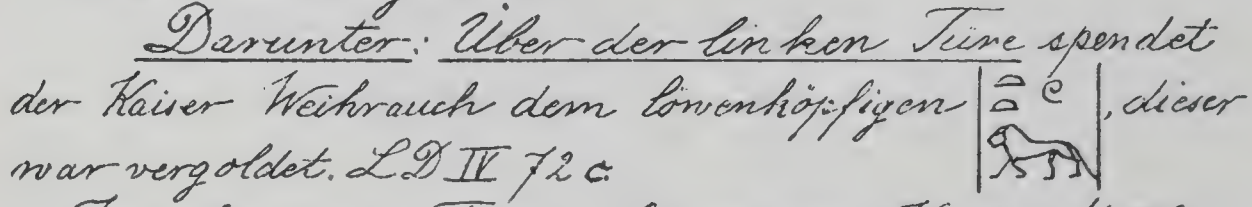 Darunter: Über der linken Türe spendet
der Kaiser Weihrauch dem löwenköpfigen , dieser
war vergoldet. LD IV 72 c.